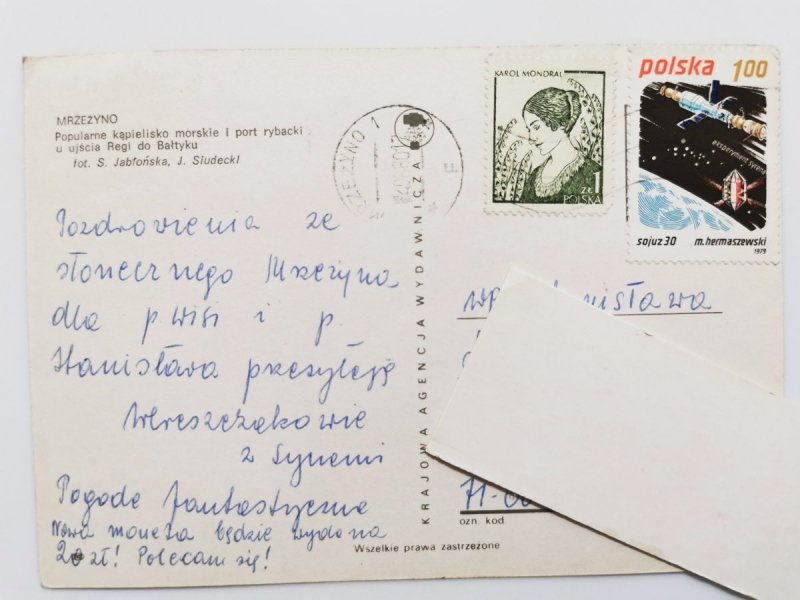 MRZEŻYNO
Popularne kąpielisko morskie i port rybacki
u ujścia Regi do Bałtyku
fot. S. Jabłońska, J. Siudecki
Pozdrowienia ze
słonecznego Mrzeżyna
dla p. Wisi i p.
Stanisława przesyłają
Wereszczakowie
z synami
Pogoda fantastyczna
Nowa moneta będzie wydana
20 zł! Polecam się!
KRAJOWA AGENCJA WYDAWNICZA
Wszelkie prawa zastrzeżone
KAROL MONDRAL
1
ZŁ
POLSKA
polska 100
eksperyment syrena
sojuz 30 m. hermaszewski
1979
71-
ozn. kod